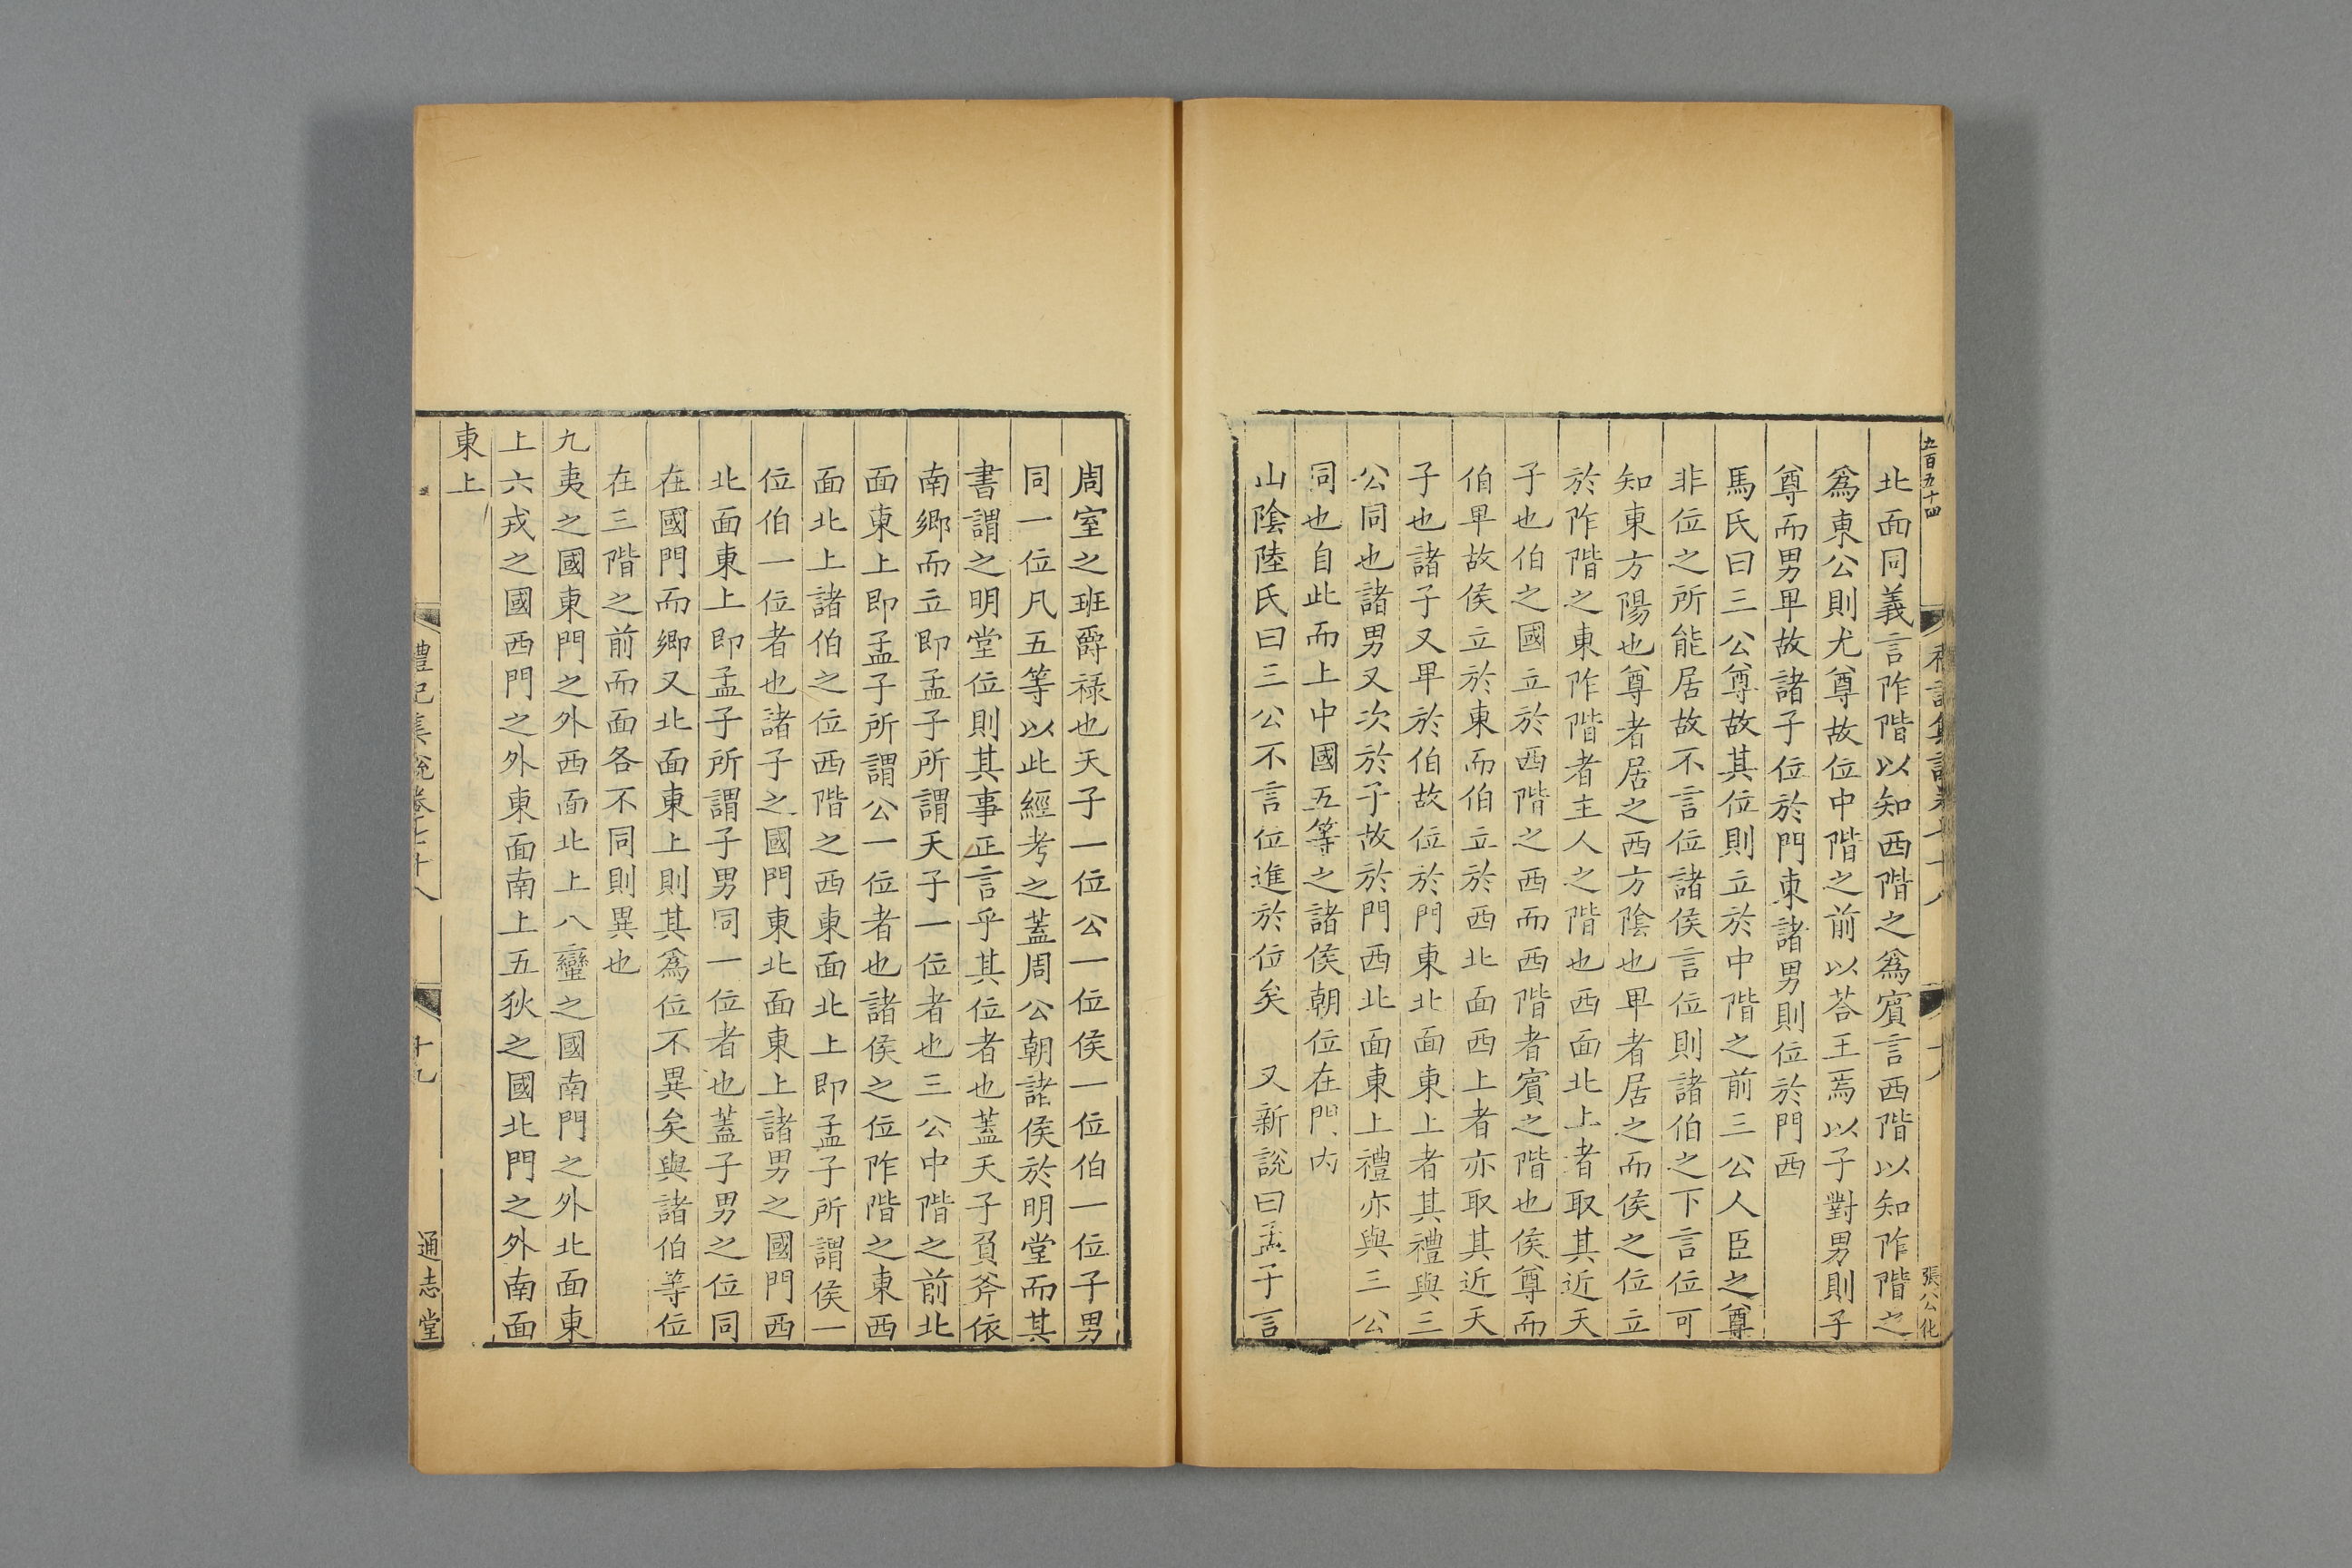 五百五十四
張公化
北面同義言阼階以知西階之爲賔言西階以知阼階之
爲東公則尤尊故位中階之前以荅王焉以子對男則子
尊而男卑故諸子位於門東諸男則位於門西
馬氏曰三公尊故其位則立於中階之前三公人臣之尊
非位之所能居故不言位諸侯言位則諸伯之下言位可
知東方陽也尊者居之西方陰也卑者居之而侯之位立
於阼階之東阼階者主人之階也西面北上者取其近天
子也伯之國立於西階之西而西階者賔之階也侯尊而
伯卑故侯立於東而伯立於西北面西上者亦取其近天
子也諸子又卑於伯故位於門東北面東上者其禮與三
公同也諸男又次於子故於門西北面東上禮亦與三公
同也自此而上中國五等之諸侯朝位在門内
山陰陸氏曰三公不言位進於位矣　又新説曰孟子言
周室之班爵禄也天子一位公一位侯一位伯一位子男
同一位凡五等以此經考之蓋周公朝諸侯於明堂而其
書謂之明堂位則其事正言乎其位者也蓋天子負斧依
南鄉而立即孟子所謂天子一位者也三公中階之前北
面東上即孟子所謂公一位者也諸侯之位阼階之東西
面北上諸伯之位西階之西東面北上即孟子所謂侯一
位伯一位者也諸子之國門東北面東上諸男之國門西
北面東上即孟子所謂子男同一位者也蓋子男之位同
在國門而鄉又北面東上則其爲位不異矣與諸伯等位
在三階之前而面各不同則異也
九夷之國東門之外西面北上八蠻之國南門之外北面東
上六戎之國西門之外東面南上五狄之國北門之外南面
東上
禮記集説卷七十八
十九
通志堂